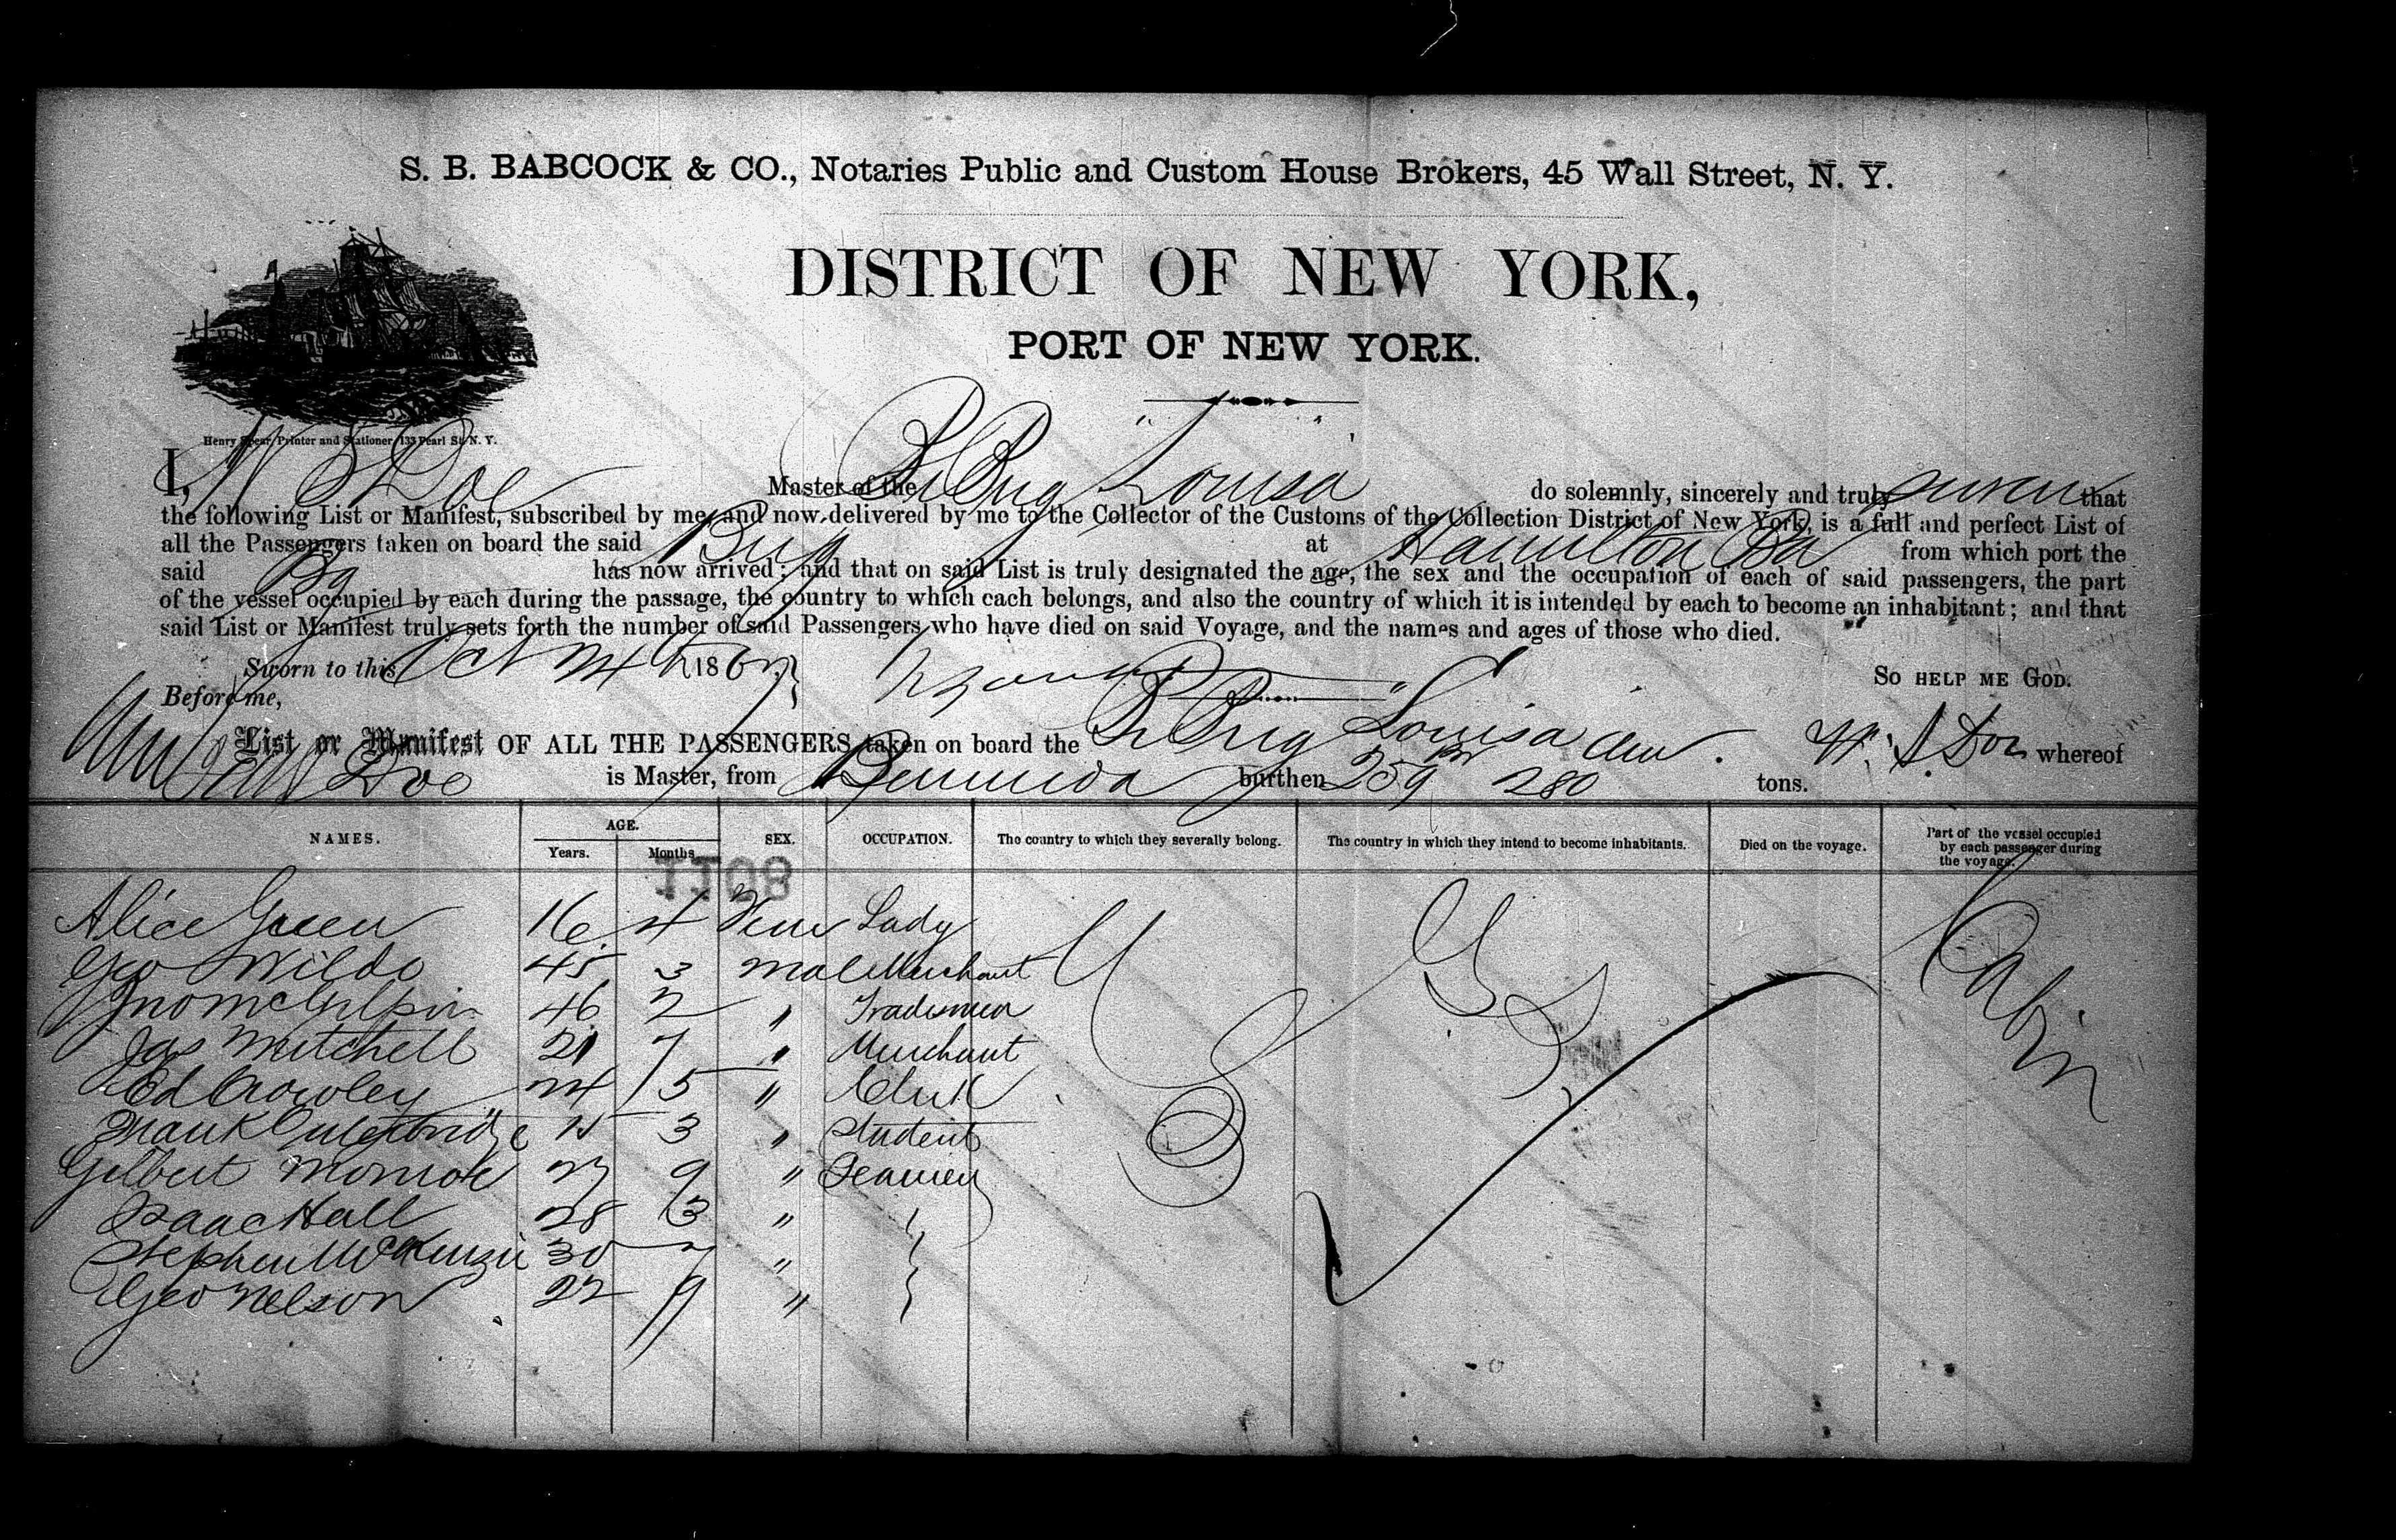 S. B. BABCOCK & CO., Notaries Public and Custom House Brokers, 45 Wall Street, N. Y.
DISTRICT OF NEW YORK,
PORT OF NEW YORK.
Henry Spear, Printer and Stationer, 133 Pearl St. N. Y.
I, W S Doe Master of the Br Brig "Louisa" do solemnly, sincerely and truly swear that
the following List or Manifest, subscribed by me, and now delivered by me to the Collector of the Customs of the Collection District of New York, is a full and perfect List of
all the Passengers taken on board the said Brig at Hamilton Ba from which port the
said Bg has now arrived; and that on said List is truly designated the age, the sex and the occupation of each of said passengers, the part
of the vessel occupied by each during the passage, the country to which each belongs, and also the country of which it is intended by each to become an inhabitant; and that
said List or Manifest truly sets forth the number of said Passengers who have died on said Voyage, and the names and ages of those who died.
Sworn to this Oct 186 So HELP ME GOD.
Before me,
List or Manifest OF ALL THE PASSENGERS taken on board the Br Brig Louisa W. S. Doe whereof
Doe is Master, from Bermuda burthen 259 280 tons.
NAMES. AGE. SEX. OCCUPATION. The country to which they severally belong. The country in which they intend to become inhabitants. Died on the voyage. Part of the vessel occupied by each passenger during the voyage.
Years. Months
1108
Alice Green 16 4 Fem Lady U S U S Cabin
Geo Wildo 45 3 Mal Merchant
Jno McGilpin 46 2 " Tradesmen
Jas Mitchell 21 7 " Merchant
Ed Crowley 24 5 " Clerk
Frank Outerbridge 15 3 " Student
Gilbert Monroe 23 9 " Seamen
Isaac Hall 28 3 " }
Stephen McKenzie 30 7 "
Geo Nelson 22 9 " }